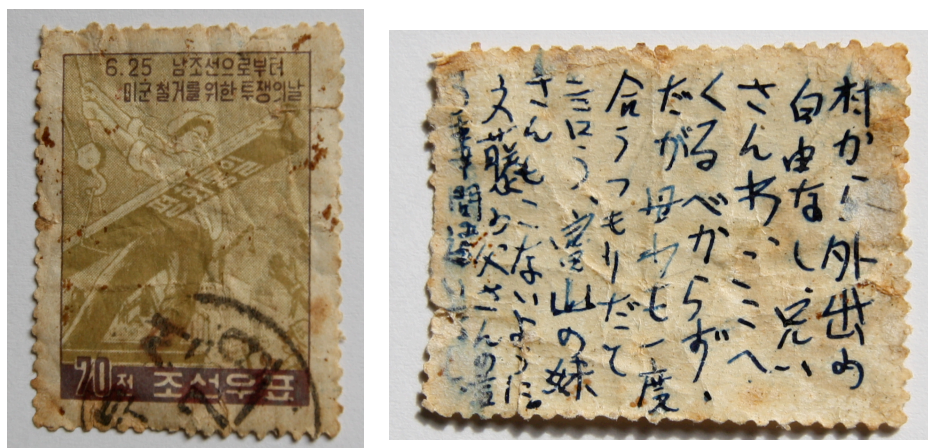 6.25 남조선으로부터
미군 철거를 위한 투쟁의날
평화통일
70전 조선우표
村から外出の
自由なし、兄い
さんわ、ここへ
くるべからず、
だが母わも一度
合うつもりだて
言う、山の妹
さんもこないように
の父さんの